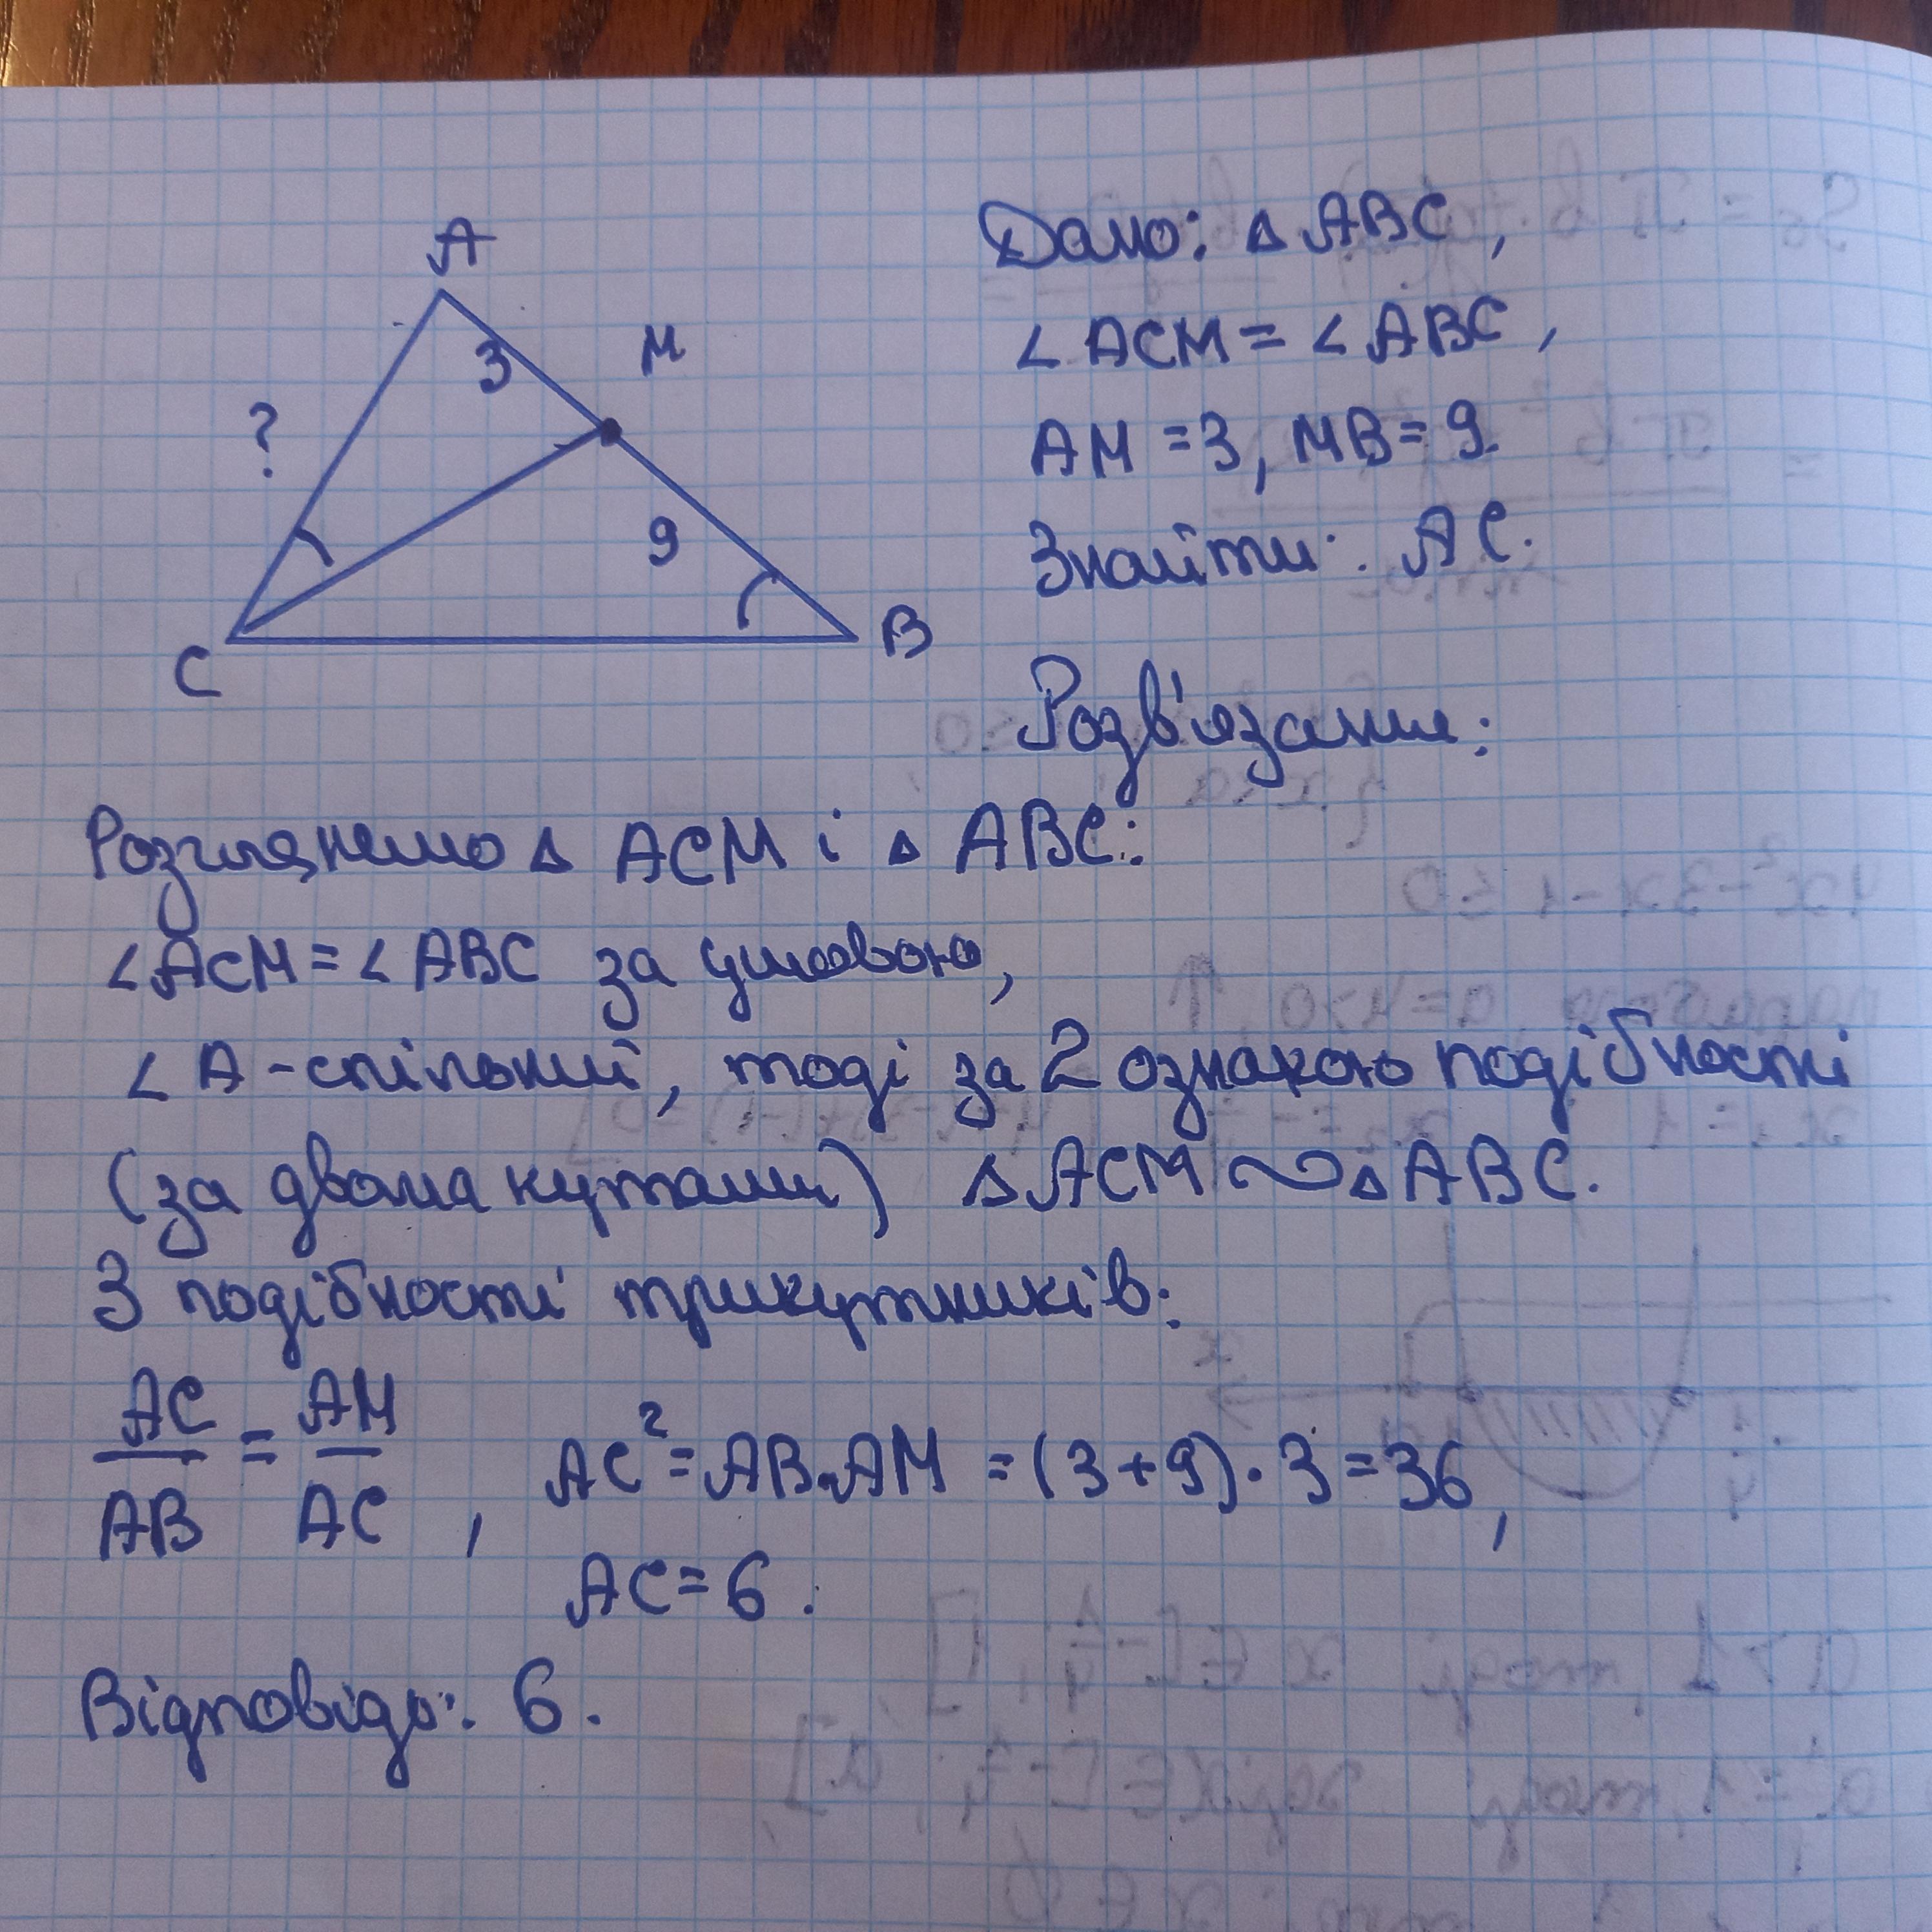 A
M
3
?
9
C
B
Дано: △ ABC,
∠ ACM = ∠ ABC,
AM = 3, MB = 9.
Знайти: AC.
Розв'язання:
Розглянемо △ ACM і △ ABC:
∠ACM = ∠ABC за умовою,
∠A - спільний, тоді за 2 ознакою подібності
(за двома кутами) △ ACM ∾ △ ABC.
З подібності трикутників:
AC/AB = AM/AC, AC² = AB·AM = (3+9)·3 = 36,
AC = 6.
Відповідь: 6.